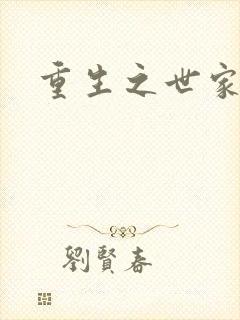 重生之世家
劉賢春